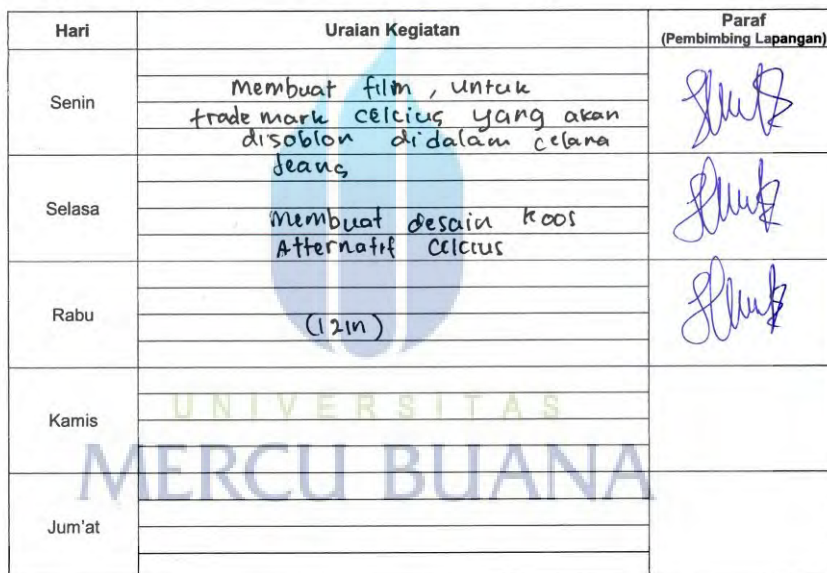 Hari Uraian Kegiatan Paraf
(Pembimbing Lapangan)
Senin
Membuat film, untuk
trade mark celcius yang akan
disoblon didalam celana
Jeans
Selasa
Membuat desain koos
Alternatif celcius
Rabu
(Izin)
Kamis
UNIVERSITAS
MERCU BUANA
Jum'at